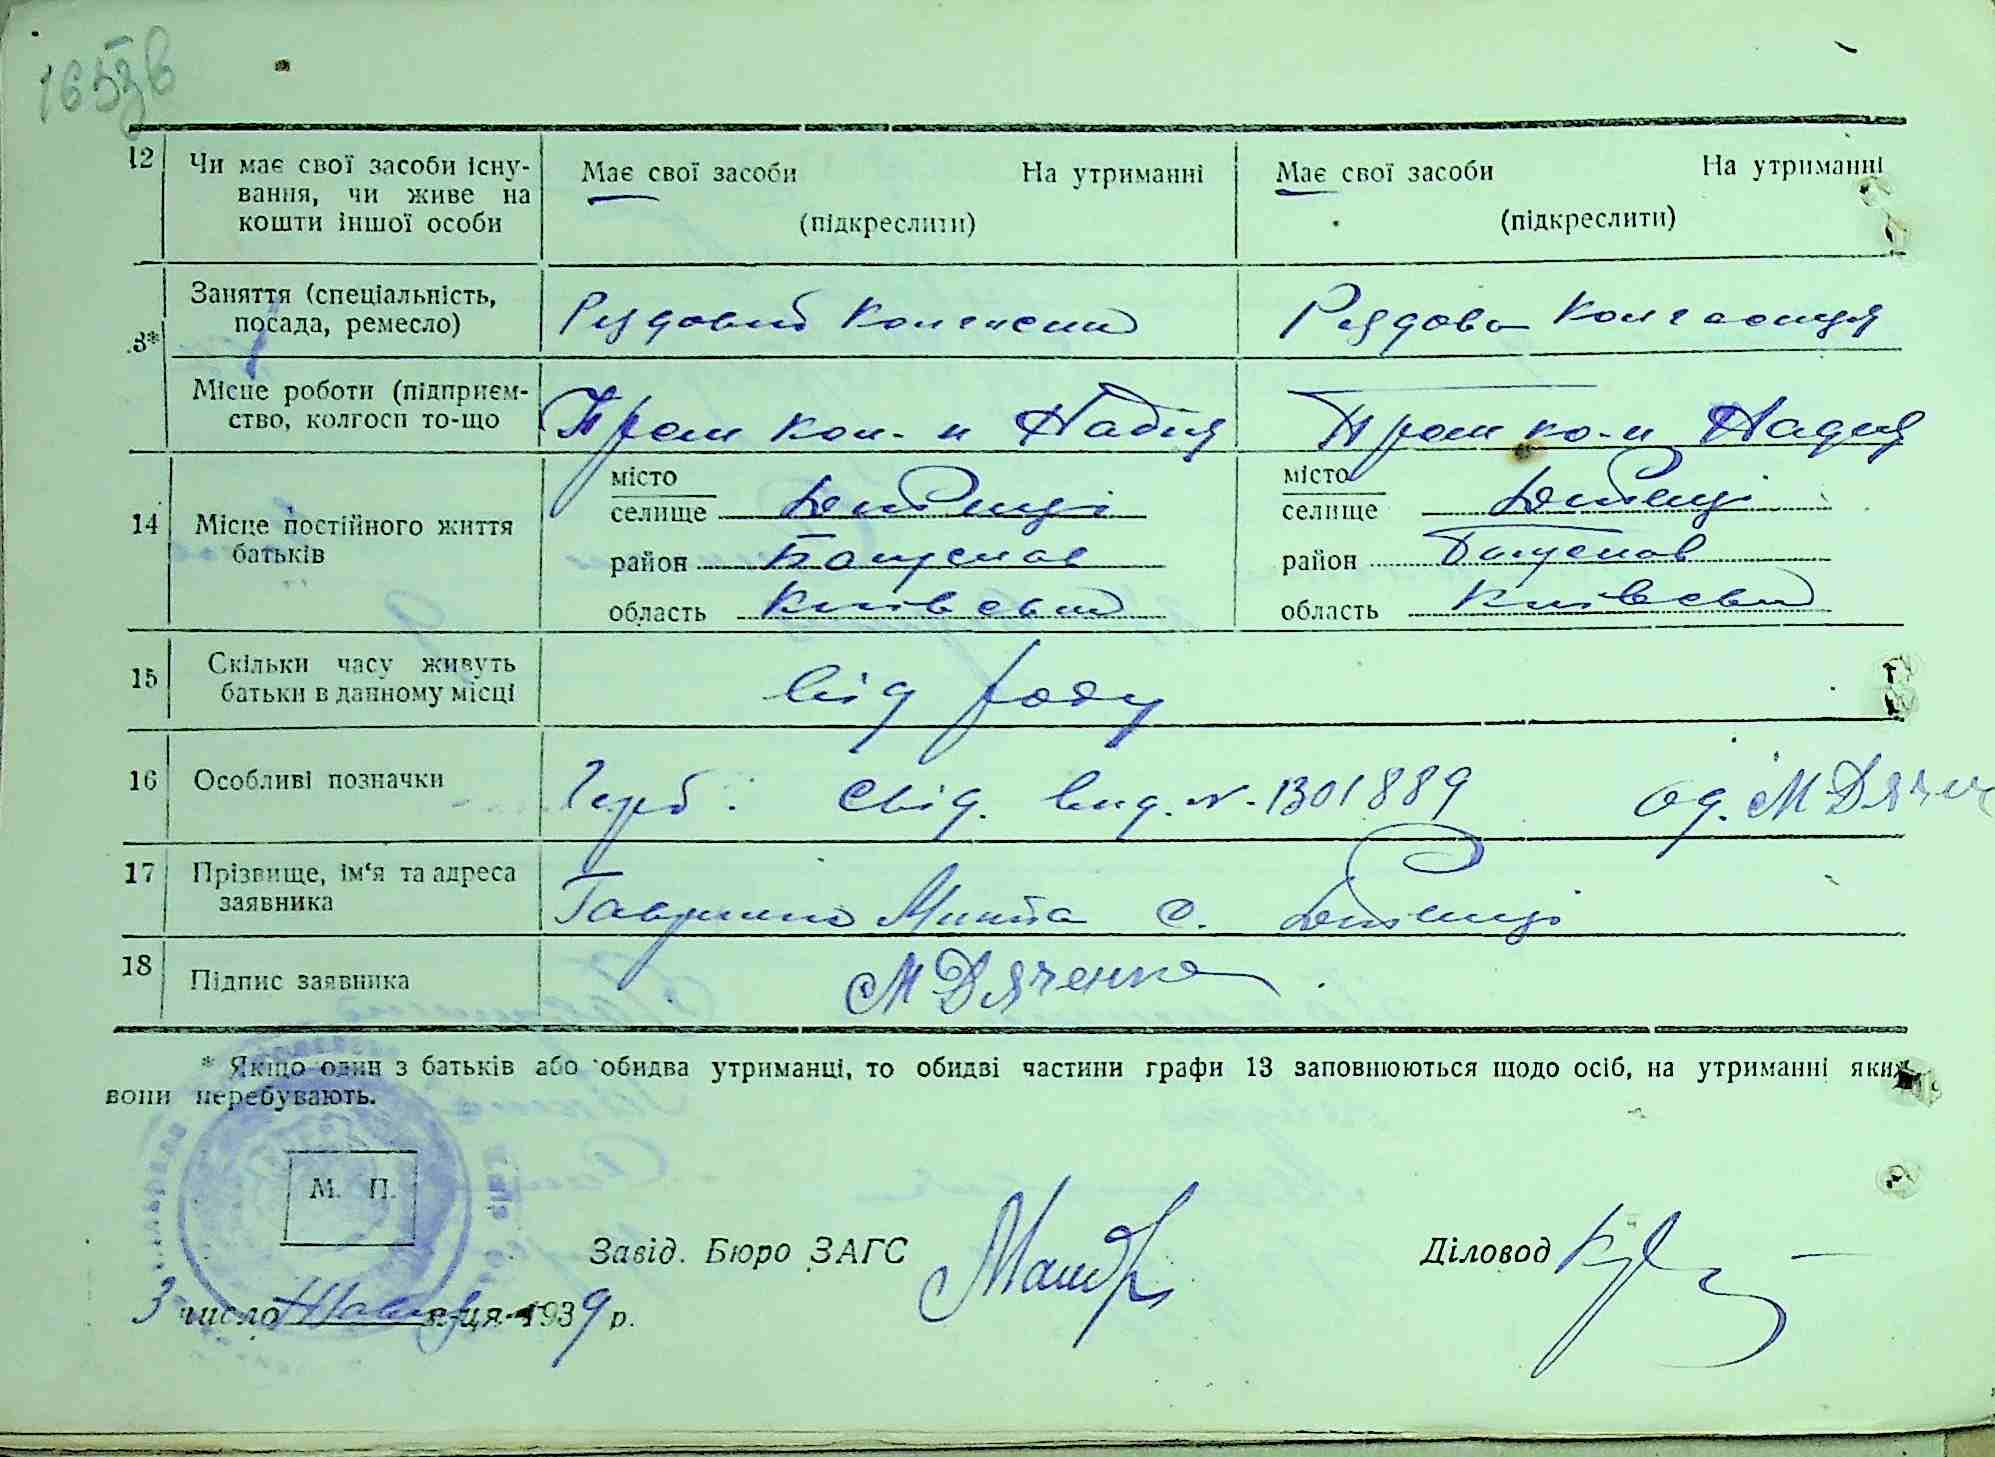 165 зв
12 Чи має свої засоби існу-
вання, чи живе на
кошти іншої особи
Має свої засоби На утриманні
(підкреслити)
Має свої засоби На утриманні
(підкреслити)
.3* Заняття (спеціальність,
посада, ремесло)
Рядовий Колгосник
Рядова Колгосниця
Місце роботи (підприєм-
ство, колгосп то-що
Пром кол-п Надія
Пром ко-п Надия
14 Місце постійного життя
батьків
місто
селище
район
область Київський
місто
селище
район
область Київський
15 Скільки часу живуть
батьки в данному місці
Від роду
16 Особливі позначки
Герб. свід. вид. N-1301889 од. М Дяч
17 Прізвище, ім'я та адреса
заявника
с.
18 Підпис заявника
М Дяченко
* Якщо один з батьків або обидва утриманці, то обидві частини графи 13 заповнюються щодо осіб, на утриманні яких
вони перебувають.
М. П.
Завід. Бюро ЗАГС
Діловод
3 число м-ця 1939 р.